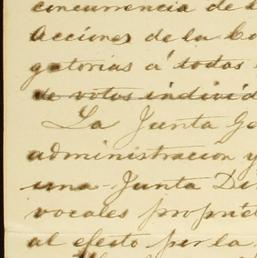 concurrencia de
acciones de la Co
gatorias á todas
de votos individ
La Junta Ge
administracion y
una Junta Di
vocales propiet
al efecto por la